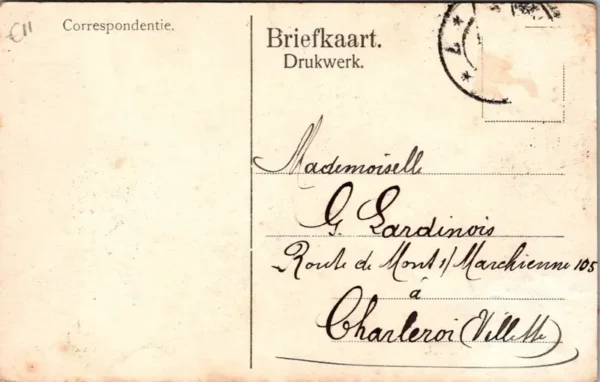 €11
Correspondentie.
Briefkaart.
Drukwerk.
Mademoiselle
G. Lardinois
Route de Mont s/ Marchienne 105
à
Charleroi (Villette)